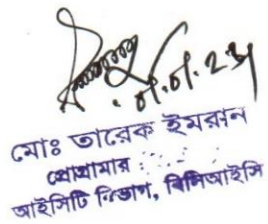 ০৮.০৮.২১
মোঃ তারেক ইমরান
প্রোগ্রামার
আইসিটি বিভাগ, বিসিআইসি